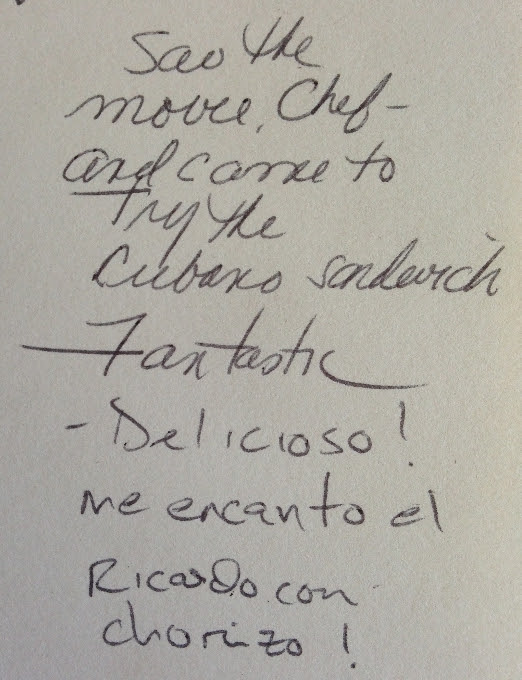 Saw the
movie, Chef -
and came to
try the
Cubano sandwich
Fantastic
- Delicioso!
me encanto el
Ricardo con
chorizo!